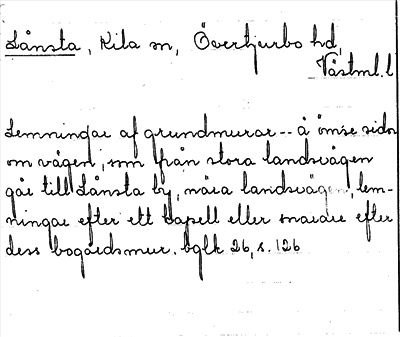 Lånsta, Kila sn, Övertjurbo hd,
Västml. l
Lemningar af grundmurar -- å ömse sidor
om vägen, som från stora landsvägen
går till Lånsta by, nära landsvägen, lem-
ningar efter ett kapell eller snarare efter
dess bogårdsmur. bglk 26, s. 126